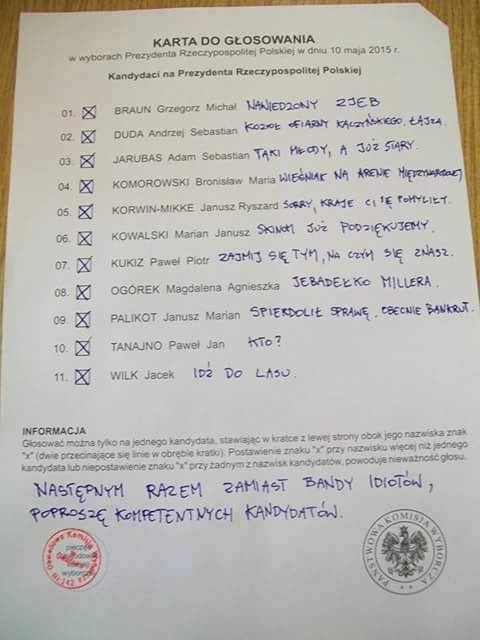 KARTA DO GŁOSOWANIA
w wyborach Prezydenta Rzeczypospolitej Polskiej w dniu 10 maja 2015 r.
Kandydaci na Prezydenta Rzeczypospolitej Polskiej
01. BRAUN Grzegorz Michał NAWIEDZONY ZJEB
02. DUDA Andrzej Sebastian KOZIOŁ OFIARNY KACZYŃSKIEGO. ŁAJZA.
03. JARUBAS Adam Sebastian TAKI MŁODY, A JUŻ STARY.
04. KOMOROWSKI Bronisław Maria WIEŚNIAK NA ARENIE MIĘDZYNARODOWEJ
05. KORWIN-MIKKE Janusz Ryszard SORRY, KRAJE CI SIĘ POMYLIŁY.
06. KOWALSKI Marian Janusz SKINOM JUŻ PODZIĘKUJEMY.
07. KUKIZ Paweł Piotr ZAJMIJ SIĘ TYM, NA CZYM SIĘ ZNASZ.
08. OGÓREK Magdalena Agnieszka JEBADEŁKO MILLERA.
09. PALIKOT Janusz Marian SPIERDOLIŁ SPRAWĘ. OBECNIE BANKRUT.
10. TANAJNO Paweł Jan KTO?
11. WILK Jacek IDŹ DO LASU.
INFORMACJA
Głosować można tylko na jednego kandydata, stawiając w kratce z lewej strony obok jego nazwiska znak
"x" (dwie przecinające się linie w obrębie kratki). Postawienie znaku "x" przy nazwisku więcej niż jednego
kandydata lub niepostawienie znaku "x" przy żadnym z nazwisk kandydatów, powoduje nieważność głosu.
NASTĘPNYM RAZEM ZAMIAST BANDY IDIOTÓW,
POPROSZĘ KOMPETENTNYCH KANDYDATÓW.
Obwodowa Komisja
PAŃSTWOWA KOMISJA WYBORCZA